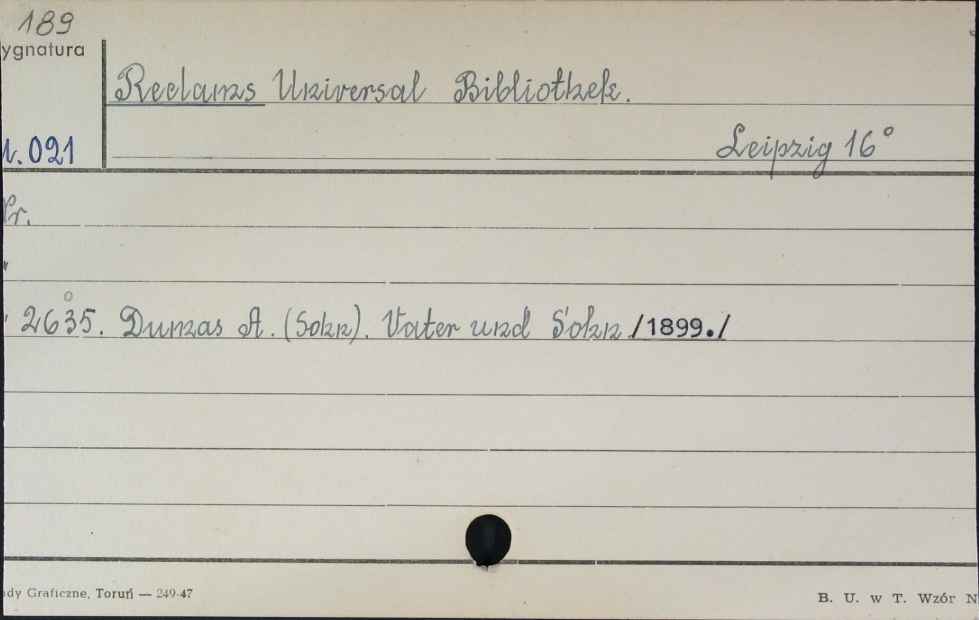 189
ygnatura
Reclams Universal Bibliothek.
021
Leipzig 16°
Nr.
2635. Dumas A. (Sohn). Vater und Sohn /1899./
dy Graficzne, Toruń — 249-47
B. U. w T. Wzór N